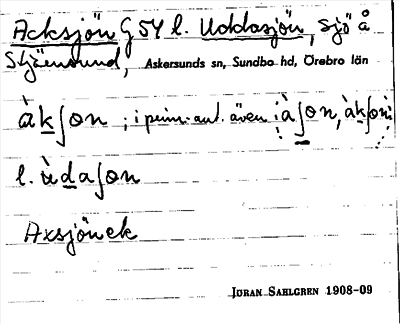 Acksjön G 54 l. Uddasjön, sjö å
Askersunds sn, Sundbo hd, Örebro län
àkʃon ; i även : àʃon, àkʃon:
l. ùdaʃon
Axsjön ek
JÖRAN SAHLGREN 1908-09